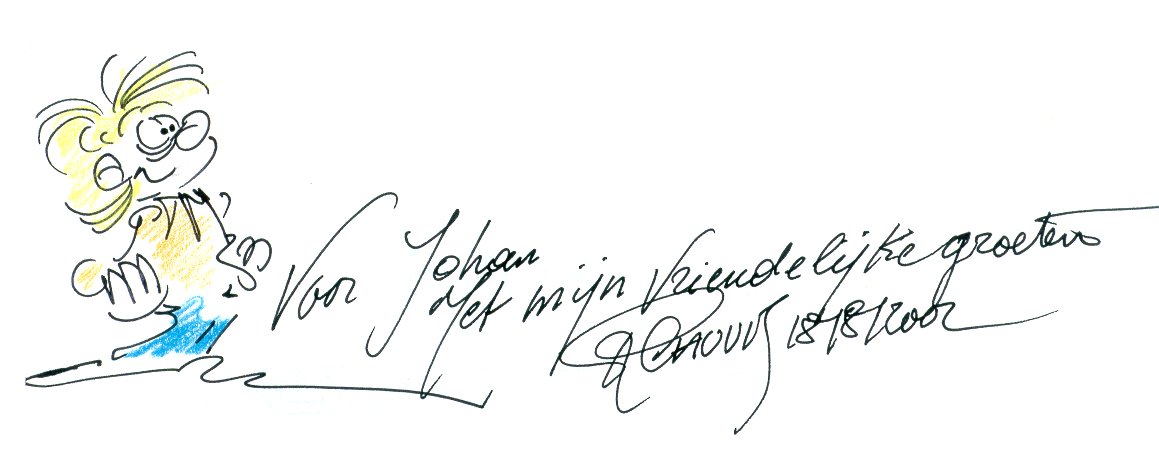 Voor Johan
Met mijn vriendelijke groeten
18/8/2002